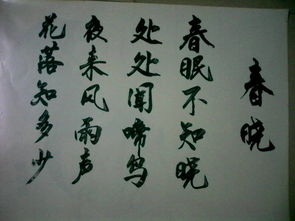 春晓
春眠不知晓
处处闻啼鸟
夜来风雨声
花落知多少